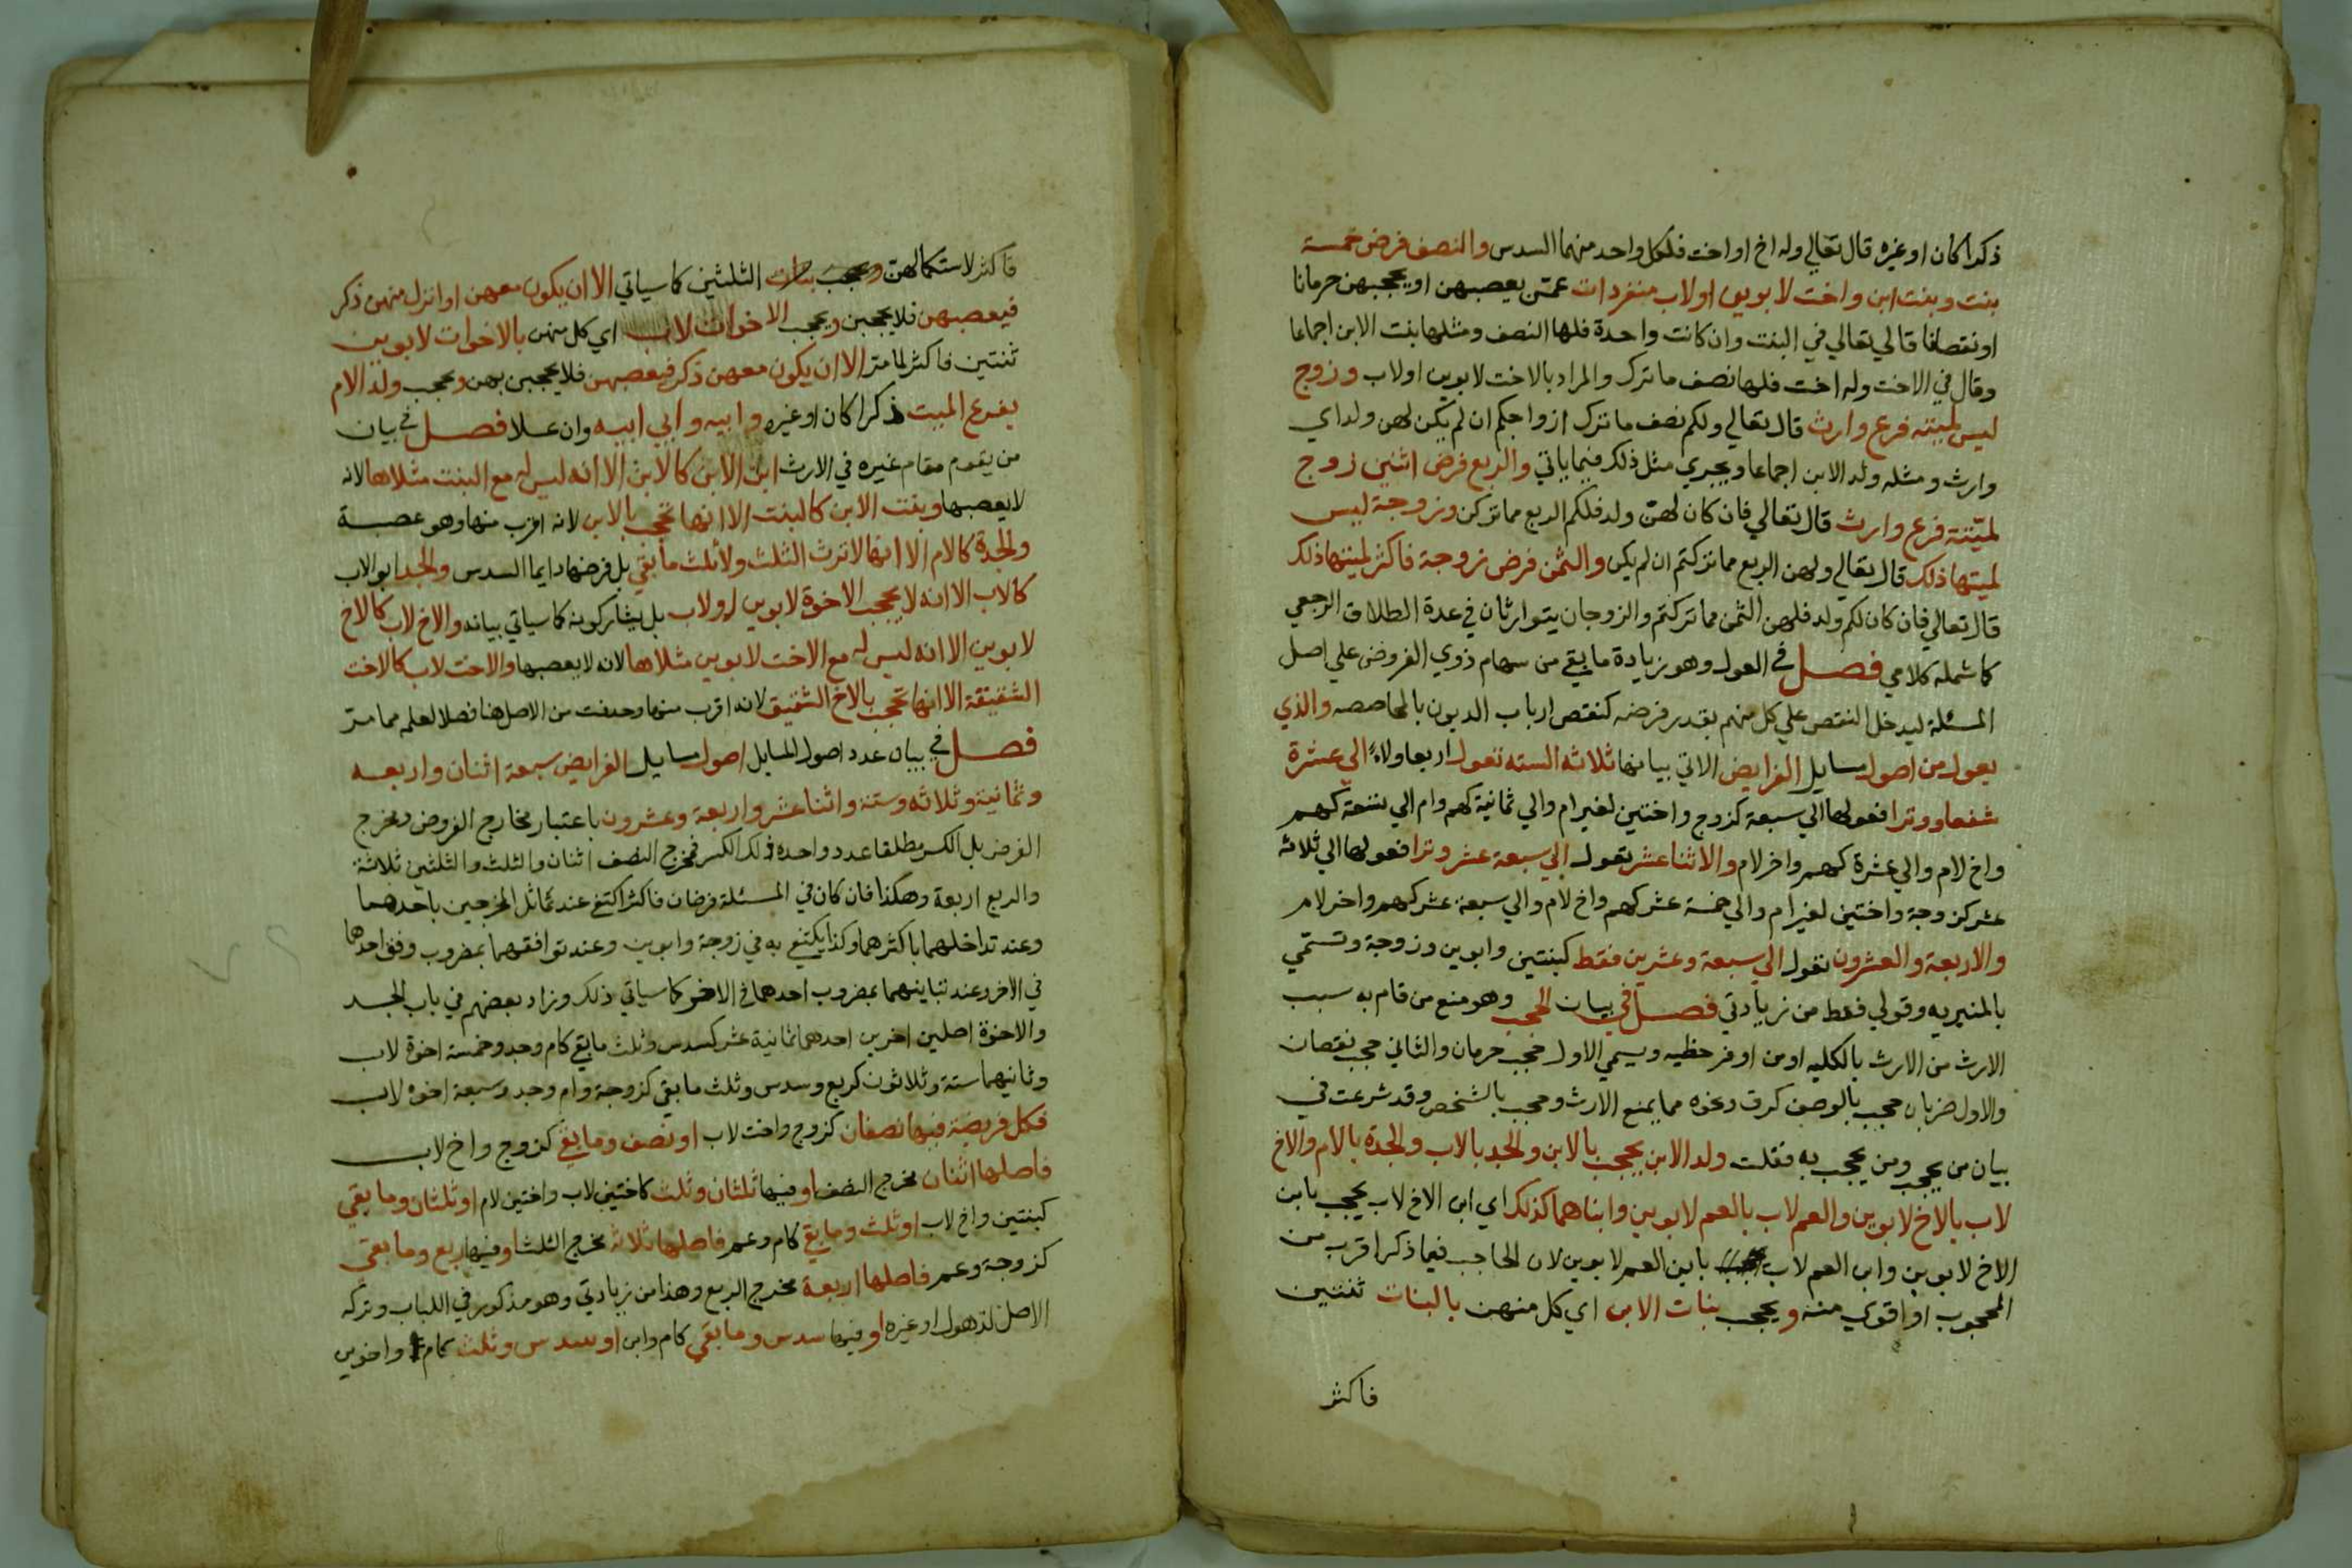 ذكرا كان او غيره قال تعالي وله اخ او اخت فلكل واحد منهما السدس والنصف فرض خمسة
بنت وبنت ابن واخت لابوين او لاب منفردات عمن يعصبهن او يحجبهن حرمانا
او نقصانا قال تعالي في البنت وان كانت واحدة فلها النصف ومثلها بنت الابن اجماعا
وقال في الاخت وله اخت فلها نصف ما ترك والمراد بالاخت لابوين او لاب وزوج
ليس لميتته فرع وارث قال تعالي ولكم نصف ما ترك ازواجكم ان لم يكن لهن ولد اي
وارث ومثله ولد الابن اجماعا ويجري مثل ذلك فيما ياتي والربع فرض اثنين زوج
لميتته فرع وارث قال تعالي فان كان لهن ولد فلكم الربع مما تركن وزوجة ليس
لميتها ذلك قال تعالي ولهن الربع مما تركتم ان لم يكن والثمن فرض زوجة فاكثر لميتها ذلك
قال تعالي فان كان لكم ولد فلهن الثمن مما تركتم والزوجان يتوارثان في عدة الطلاق الرجعي
كما شمله كلامي فصل في العول وهو زيادة ما بقي من سهام ذوي الفروض علي اصل
المسئلة ليدخل النقص علي كل منهم بقدر فرضه كنقص ارباب الديون بالمحاصصه والذي
يعول من اصول مسايل الفرايض الاتي بيانها ثلاثه السته تعول اربعا ولاء الي عشرة
شفعا ووترا فعولها الي سبعة كزوج واختين لغير ام والي ثمانية كهم وام الي تسعة كهم
واخ لام والي عشرة كهم واخر لام والاثنا عشر تعول الي سبعة عشر وترا فعولها الي ثلاثه
عشر كزوجة واختين لغير ام والي خمسة عشر كهم واخ لام والي سبعة عشر كهم واخر لام
والاربعة والعشرون تعول الي سبعة وعشرين فقط كبنتين وابوين وزوجة وتسمي
بالمنبريه وقولي فقط من زيادتي فصل في بيان الحجب وهو منع من قام به سبب
الارث من الارث بالكليه او من اوفر حظيه ويسمي الاول حجب حرمان والثاني حجب نقصان
والاول ضربان حجب بالوصف كرق ونحوه مما يمنع الارث وحجب بالشخص وقد شرعت في
بيان من يحجب ومن يحجب به فقلت ولد الابن يحجب بالابن والجد بالاب والجدة بالام والاخ
لاب بالاخ لابوين والعم لاب بالعم لابوين وابناهما كذلك اي ابن الاخ لاب يحجب بابن
الاخ لابوين وابن العم لاب بابن العم لابوين لان الحاجب فيما ذكر اقرب من
المحجوب او اقوي منه ويحجب بنات الابن اي كل منهن بالبنات ثنتين
فاكثر
فاكثر لاستكمالهن الثلثين كما سياتي الا ان يكون معهن او انزل منهن ذكر
فيعصبهن فلا يحجبن ويحجب الاخوات لاب اي كل منهن بالاخوات لابوين
ثنتين فاكثر لما مر الا ان يكون معهن ذكر فيعصبهن فلا يحجبن بهن ويحجب ولد الام
بفرع الميت ذكرا كان او غيره وابيه وابي ابيه وان علا فصل في بيان
من يقوم مقام غيره في الارث ابن الابن كالابن الا انه ليس له مع البنت مثلاها لانه
لا يعصبها وبنت الابن كالبنت الا انها تحجب بالابن لانه اقرب منها وهو عصبة
والجدة كالام الا انها لا ترث الثلث ولا ثلث ما بقي بل فرضها دايما السدس والجد ابو الاب
كالاب الا انه لا يحجب الاخوة لابوين او لاب بل يشاركونه كما سياتي بيانه والاخ لاب كالاخ
لابوين الا انه ليس له مع الاخت لابوين مثلاها لانه لا يعصبها والاخت لاب كالاخت
الشقيقة الا انها تحجب بالاخ الشقيق لانه اقرب منها وحذفت من الاصل هنا فصلا لعلمه مما مر
فصل في بيان عدد اصول المسايل اصول مسايل الفرايض سبعة اثنان واربعه
وثمانية وثلاثه وستة واثنا عشر واربعة وعشرون باعتبار مخارج الفروض ومخرج
الفرض بل الكسر مطلقا عدد واحده ذلك الكسر فمخرج النصف اثنان والثلث والثلثين ثلاثة
والربع اربعة وهكذا فان كان في المسئلة فرضان فاكثر اكتفي عند تماثل المخرجين باحدهما
وعند تداخلهما باكثرهما وكذا يكتفي به في زوجة وابوين وعند توافقهما بمضروب وفق احدهما
في الاخر وعند تباينهما بمضروب احدهما في الاخر كما سياتي ذلك وزاد بعضهم في باب الجد
والاخوة اصلين اخرين احدهما ثمانية عشر كسدس وثلث ما بقي كام وجد وخمسة اخوة لاب
وثانيهما ستة وثلاثون كربع وسدس وثلث ما بقي كزوجة وام وجد وسبعة اخوه لاب
فكل فريضة فيها نصفان كزوج واخت لاب او نصف وما بقي كزوج واخ لاب
فاصلها اثنان مخرج النصف او فيها ثلثان وثلث كاختين لاب واختين لام او ثلثان وما بقي
كبنتين واخ لاب او ثلث وما بقي كام وعم فاصلها ثلاثه مخرج الثلث او فيها ربع وما بقي
كزوجة وعم فاصلها اربعة مخرج الربع وهذا من زيادتي وهو مذكور في اللباب وتركه
الاصل لذهول او غيره او فيها سدس وما بقي كام وابن او سدس وثلث كام واخوين